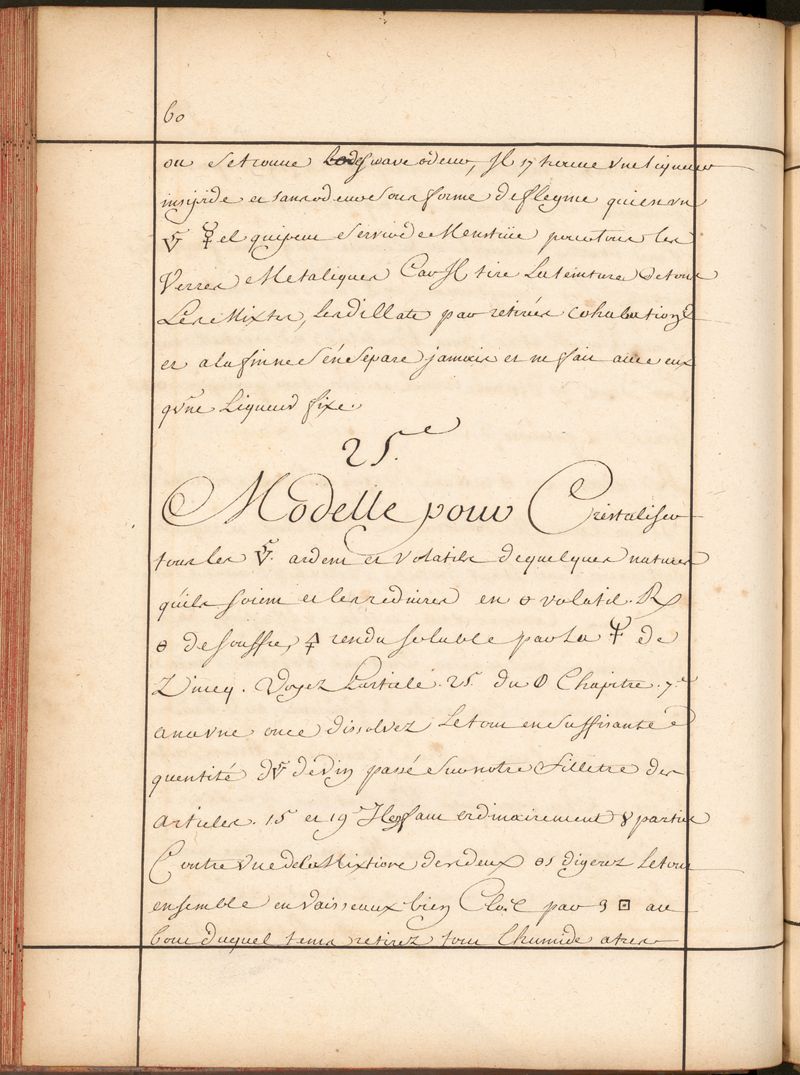 60
ou se trouve suave odeur, Jl y trouve vne liqueur
insipide et sans odeur sous forme de flegme qui est vn
🜄 ☿el qui peut servir de Menstrüe pour tous les
Verres Metaliques Car Jl tire La teinture de tous
Les Mixtes, Les par retirées cohabations
et a la fin ne s'en separe jamais et ne fait avec eux
qu'vne Liqueur fixe.
25.e
Modelle pour Cristaliser
tous les ardent et volatils de quelques natures
qu'ils soient et les reduires en volatil. ℞
🜔 de souffre, 🜍 rendu soluble par La de
Zineq. Voyez L'article 25. du Chapitre 7.e
ana vne once dissolvez Le tout en suffisante
quentité d de vin passé sur notre filletre des
articles 15 et 19 Jl faut ordinairement 8 parties
Contre vne de la Mixtion des deux digerez Le tout
ensemble en vaisseaux bien Clos par 3 ⊡ au
bout duquel tems retirez tout l'humide